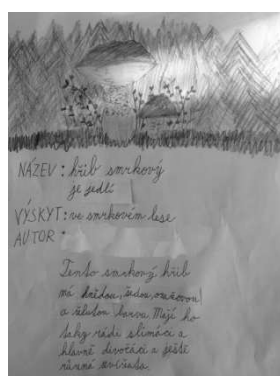 NÁZEV: hřib smrkový
je jedlí
VÝSKYT: ve smrkovém lese
AUTOR:
Tento smrkový hřib
má hnědou, šedou, oranžovou
a žlutou barvu. Mají ho
taky rádi slimáci a
hlavně divočáci a ještě
různá zvířata.